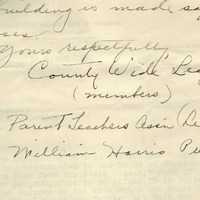 building is made sa
ses.
Yours respectfully
County Wide Lea
(members)
Parent Teachers Assn (De
William Harris P